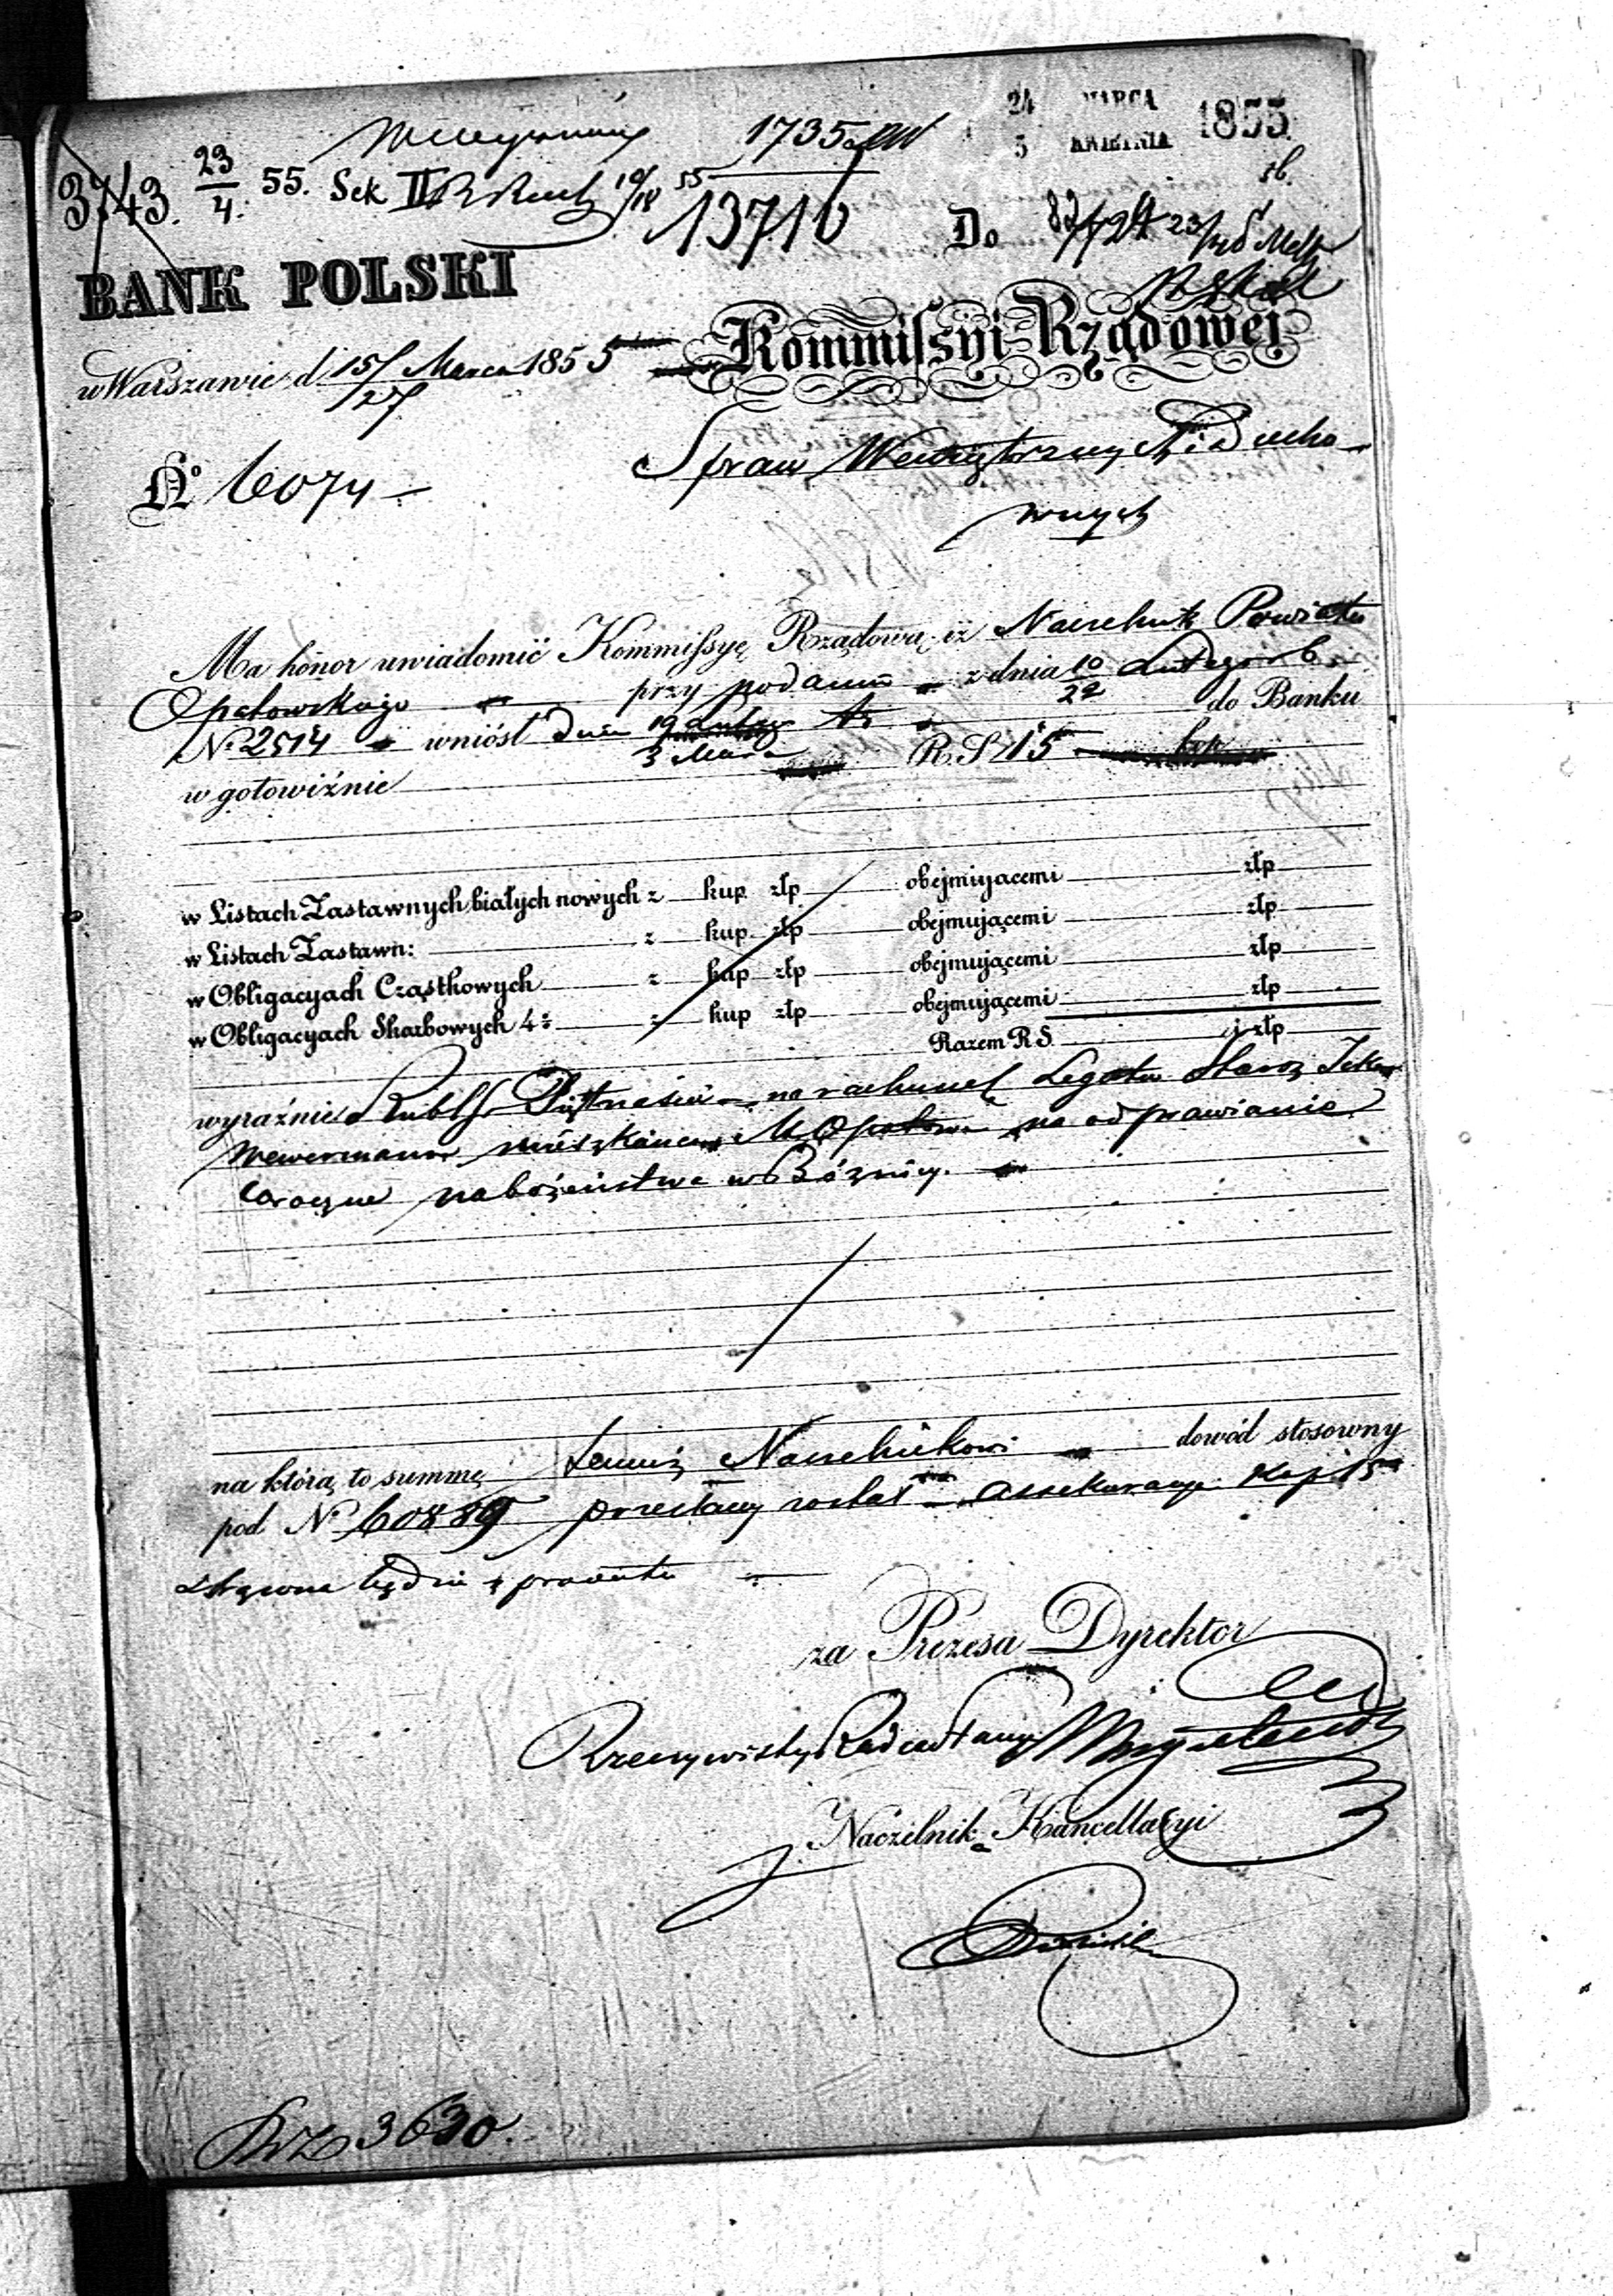 24 MARCA 1855
5 KWIETNIA
1735
3743. 23/4. 55. Sek II
13716
Do
BANK POLSKI
Kommissyi Rządowej
w Warszawie d. 15/27 Marca 1855
Spraw Wewnętrznych i Ducho-
wnych
No 6074
Ma honor uwiadomić Kommissyę Rządową, iż Naczelnik Powiatu
Opatowskiego przy podaniu z dnia 10/22 Lutego r b.
No 2514 wniósł dnia 19 Lutego / 3 Marca do Banku
w gotowiźnie R. S. 15
w Listach Zastawnych białych nowych z kup złp obejmującemi złp
w Listach Zastawn: z kup złp obejmującemi złp
w Obligacyach Cząstkowych z kup złp obejmującemi złp
w Obligacyach Skarbowych 4% z kup złp obejmującemi złp
Razem R S i złp
wyraźnie Rubli Sr Piętnaście na rachunek Legatu Staroz
mieszkańca M. Opatowa na odprawianie
coroczne nabożeństwa w Bóżnicy.
na którą to summę Temuż Naczelnikowi dowód stosowny
pod No 60889 przesłany został assekuracya Kop 15
będzie z procentu
za Prezesa Dyrektor
Rzeczywisty Radca Stanu
Naczelnik Kancellaryi
3630